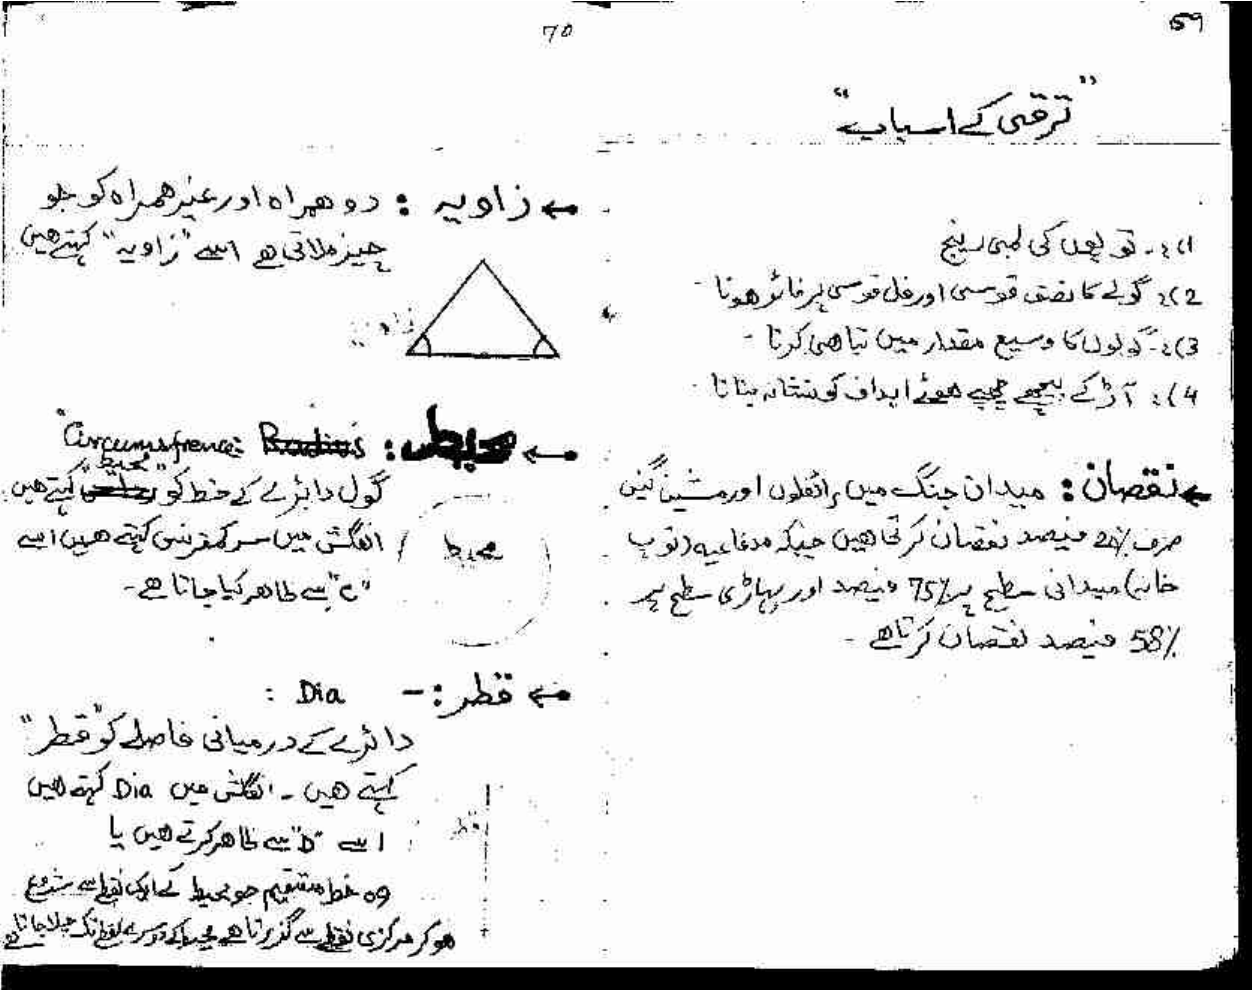 59
"ترقی کے اسباب"
(1:۔ توپوں کی لمبی رینج
(2: گولے کا نصف قوسی اور فل قوسی پر فائر ھونا ۔
(3:۔ گولوں کا وسیع مقدار میں تباھی کرنا ۔
(4: آڑ کے پیچھے چھپے ھوئے اہداف کو نشانہ بنانا ۔
← نقصان: میدان جنگ میں رائفلوں اور مشین گنیں
صرف 20% فیصد نقصان کرتا ھیں جبکہ مدفاعیہ (توپ
خانہ) میدانی سطح پر 75% فیصد اور پہاڑی سطح پر
58% فیصد نقصان کرتا ھے ۔
70
← زاویہ : دو ھمراہ اور غیر ھمراہ کو جو
چیز ملاتی ھے اسے "زاویہ" کہتے ھیں
زاویہ
← محیط : Radius Circumsfrence:
گول دائرے کے خط کو "محیط" کہتے ھیں
انگلش میں سرکمفرنس کہتے ھیں اسے
"C" سے ظاھر کیا جاتا ھے ۔
محیط
← قطر :- Dia :
دائرے کے درمیانی فاصلے کو "قطر"
کہتے ھیں ۔ انگلش میں Dia کہتے ھیں
اسے "D" سے ظاھر کرتے ھیں یا
وہ خط مستقیم جو محیط کے ایک نقطے سے شروع
ھو کر مرکزی نقطے سے گذرتا ھے محیط کے دوسرے نقطے تک چلا جاتا ھے
قطر